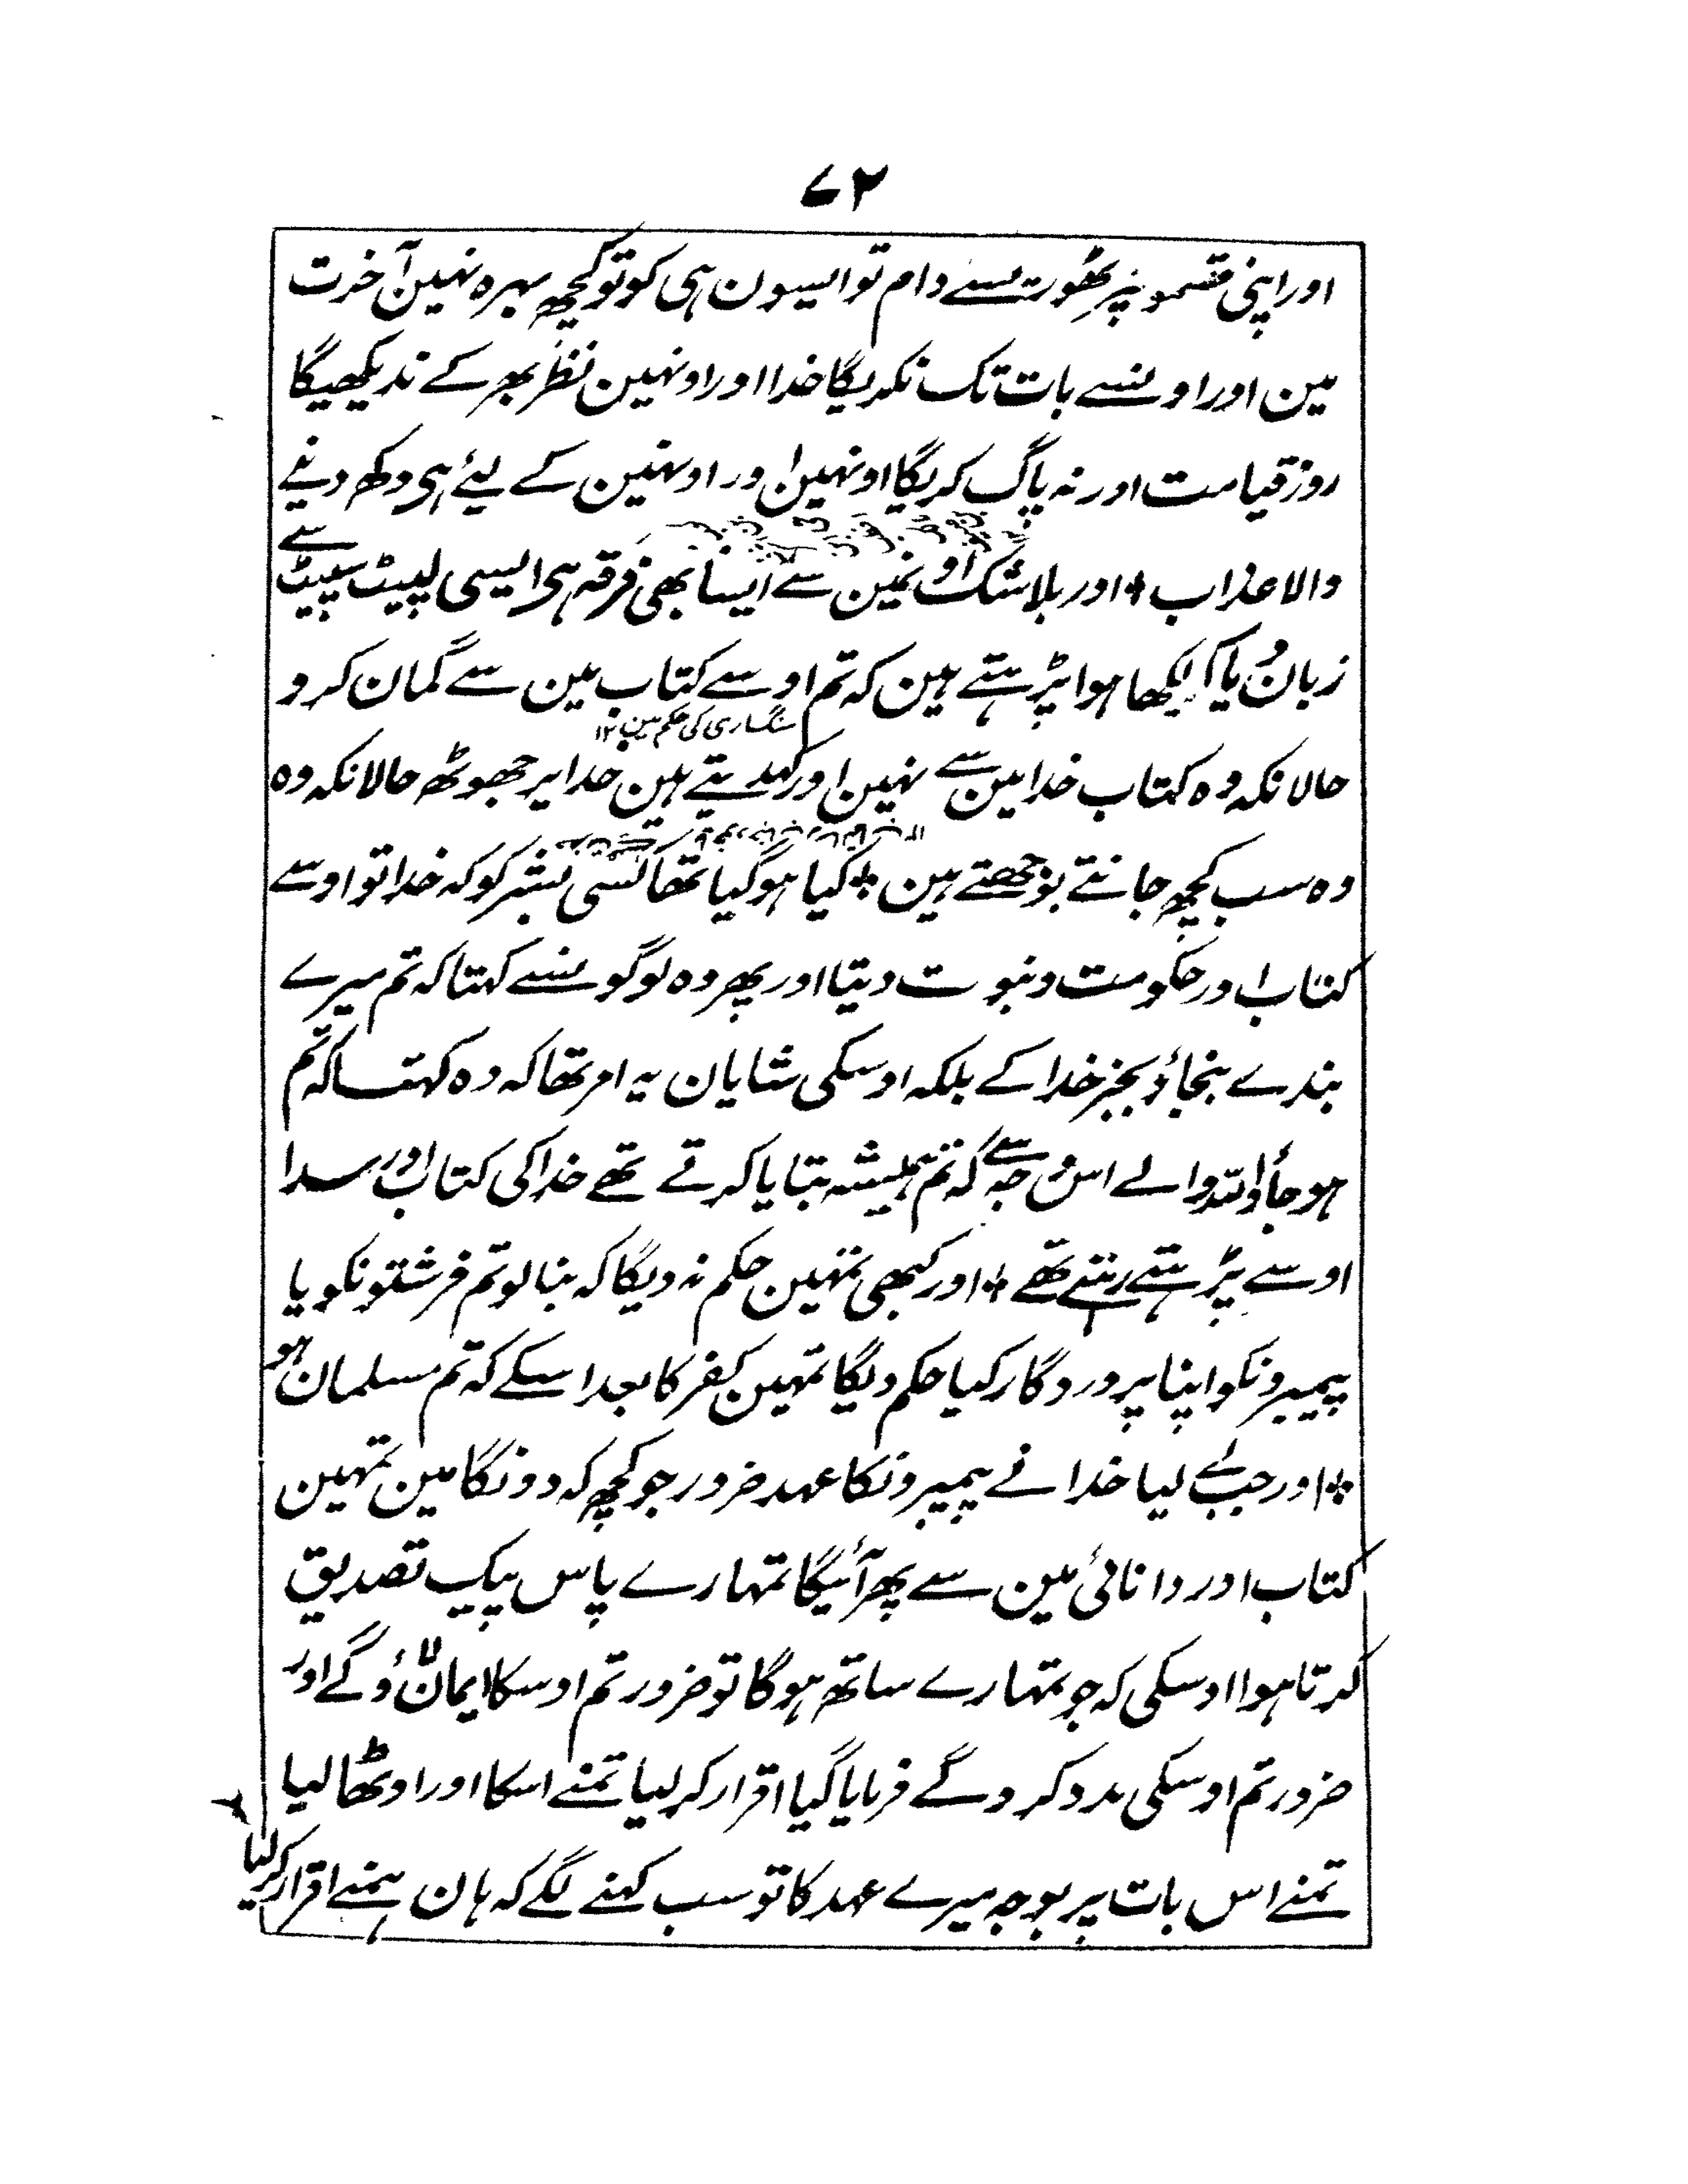 ۷۲
اور اپنی قسمونپر تھورتسے دام تو ایسون ہی کو تو کچھ بہرہ نہین آخرت
مین اور اونسے بات تک نکریگا خدا اور اونہین نظر بھر کے ندیکھیگا
روز قیامت اور نہ پاک کریگا اونہین اور اونہین کے لیئے ہی دکھ دینے
والا عذاب ۞ اور بلاشک اونمین سے ایسا بھی فرقہ ہی ایسی لپیٹ سپیٹ سے
زبان و یا کا لکھا ہوا پڑہتے ہین کہ تم اوسے کتاب مین سے گمان کرو
سنگساری کی حکم مین ۱۲
حالانکہ وہ کتاب خدا مین سے نہین اور کہدیتے ہین خدا پر جھوٹھ حالانکہ وہ
وہ سب کچھ جانتے بوجھتے ہین ۞ کیا ہو گیا تھا کسی بشر کو کہ خدا تو اوسے
کتاب اور حکومت و نبوت دیتا اور پھر وہ لوگونسے کہتا کہ تم میرے
بندے بنجاؤ بجز خدا کے بلکہ اوسکی شایان یہ امر تھا کہ وہ کہتا کہ تم
ہو جاؤ اللہ والے اس وجہ سے کہ تم ہمیشہ بتایا کرتے تھے خدا کی کتاب اور سدا
اوسے پڑہتے رہتے تھے ۞ اور کبھی تمہین حکم نہ دیگا کہ بنالو تم فرشتونکو یا
پیمبرونکو اپنا پروردگار کیا حکم دیگا تمہین کفر کا بعد اسکے کہ تم مسلمان ہو
۞ اور جب لے لیا خدا نے پیمبرونکا عہد ضرور جو کچھ کہ دونگا مین تمہین
کتاب اور دانائی مین سے پھر آئیگا تمہارے پاس پیک تصدیق
کرتا ہوا اوسکی کہ جو تمہارے ساتھ ہوگا تو ضرور تم اوسکا ایمان لاؤگے اور
ضرور تم اوسکی مدد کروگے فرمایا گیا اقرار کر لیا تمنے اسکا اور اوٹھا لیا
تمنے اس بات پر بوجھ میرے عہد کا تو سب کہنے لگے کہ ہان ہمنے اقرار کر لیا